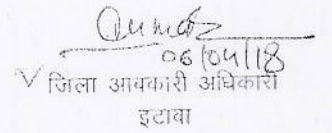 06/04/18
जिला आबकारी अधिकारी
इटावा